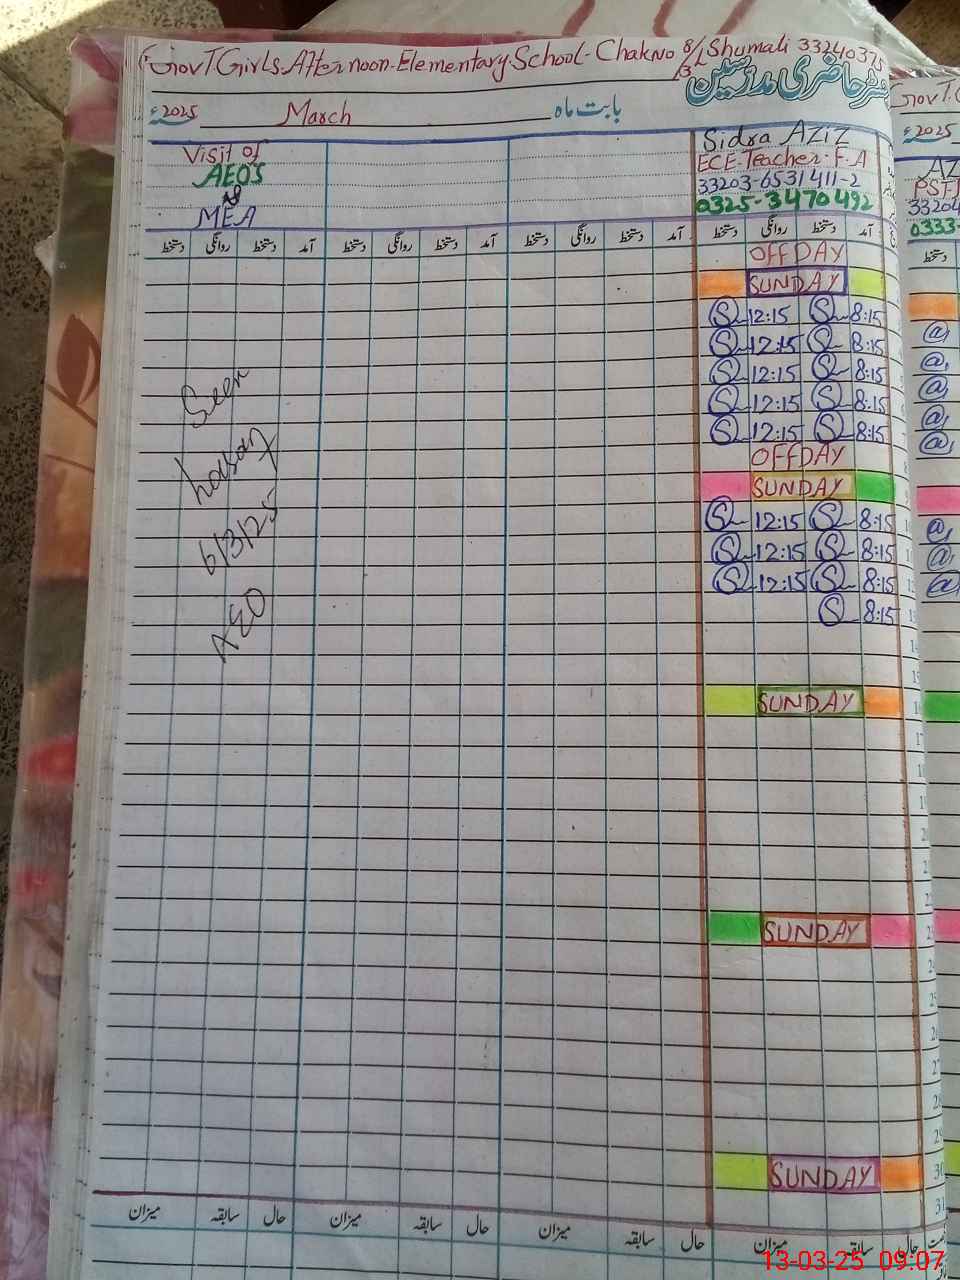 GovT Girls. Afternoon. Elementary. School - Chak No 8/L Shumali 33240375
13
رجسٹر حاضری مدرسین
2025ء March بابت ماہ
Visit of
AEO's
&
MEA
Sidra AZIZ
ECE-Teacher. F.A
33203-6531411-2
0325-3470492
دستخط روانگی دستخط آمد دستخط روانگی دستخط آمد دستخط روانگی دستخط آمد دستخط روانگی دستخط آمد
OFF DAY
SUNDAY
S 12:15 S 8:15
S 12:15 S 8:15
S 12:15 S 8:15
S 12:15 S 8:15
S 12:15 S 8:15
OFF DAY
SUNDAY
S 12:15 S 8:15
S 12:15 S 8:15
S 12:15 S 8:15
S 8:15
Seen
6/3/25
AEO
SUNDAY
SUNDAY
SUNDAY
میزان سابقہ حال میزان سابقہ حال میزان سابقہ حال میزان سابقہ حال
GovT.G
2025ء
AZ
PST
33204
0333-
دستخط
13-03-25 09:07